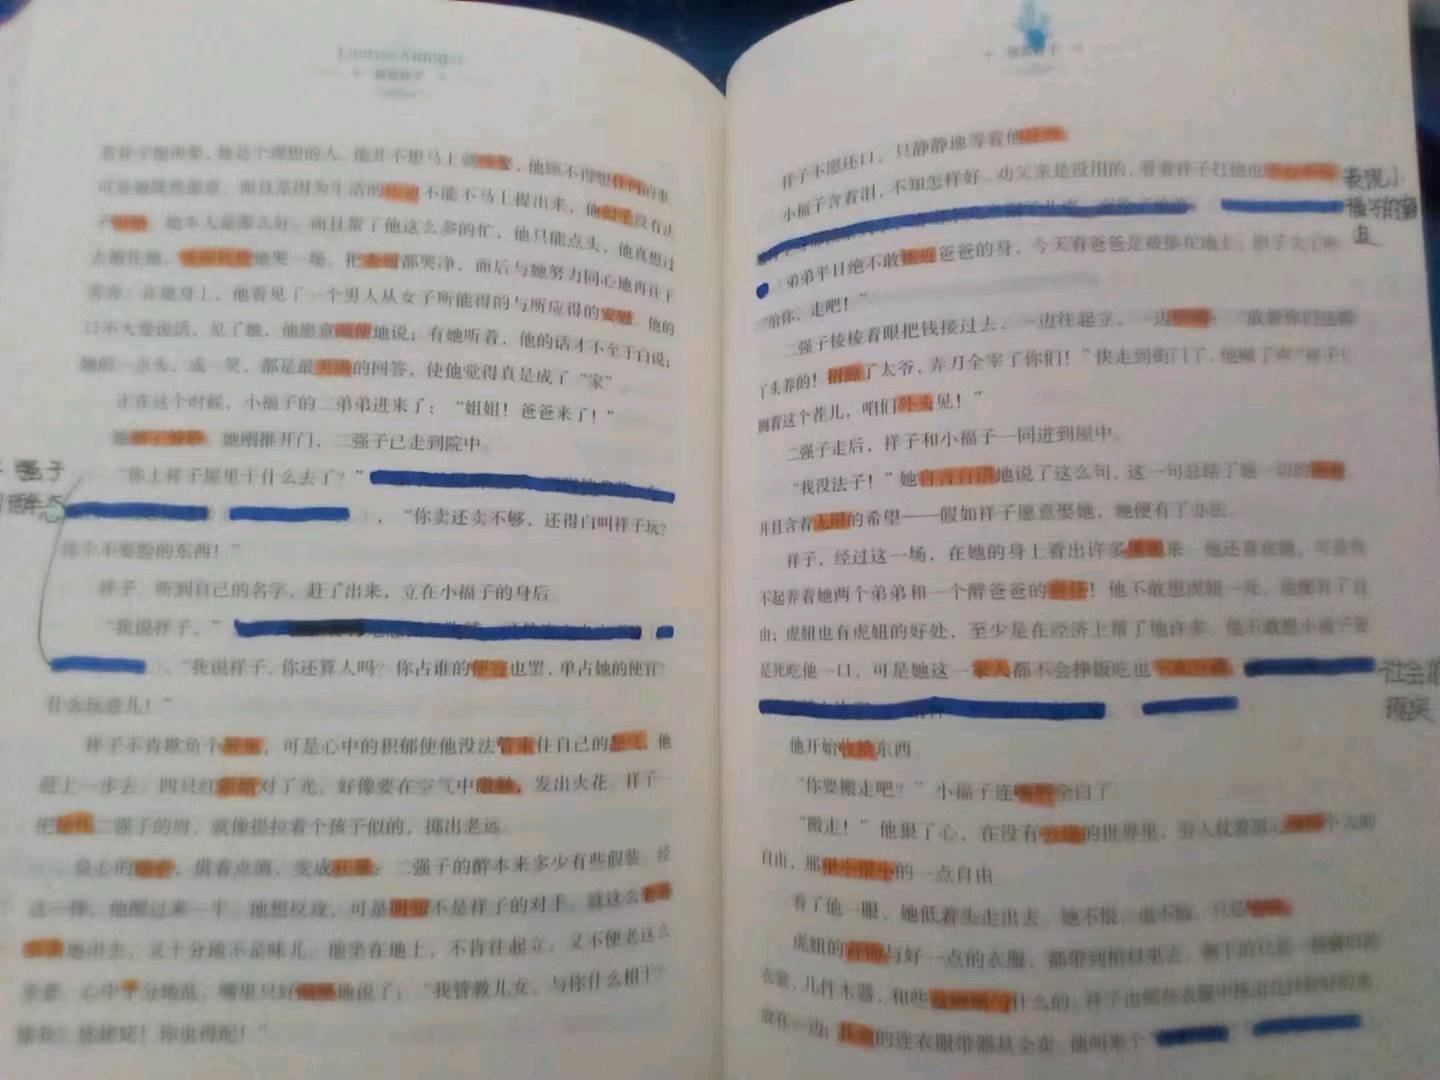 Luotuo Xiangzi
若祥子愿再娶，她是个理想的人。他并不想马上就，他顾不得想的事
可是她既然愿意，而且是因为生活的不能不马上提出来，他没有法
子。她本人是那么好，而且帮了他这么多的忙，他只能点头，他真想过
去抱住她，地哭一场，把都哭净，而后与她努力同心地再往下
苦奔。在她身上，他看见了一个男人从女子所能得的与所应得的安慰。他的
口不大爱说话，见了她，他愿意随便地说；有她听着，他的话才不至于白说；
她的一点头，或一笑，都是最美满的回答，使他觉得真是成了“家”
正在这个时候，小福子的二弟弟进来了：“姐姐！爸爸来了！”
她。她刚推开门，二强子已走到院中。
“你上祥子屋里干什么去了？”
二强子
醉态
，“你卖还卖不够，还得白叫祥子玩？
你个不要脸的东西！”
祥子，听到自己的名字，赶了出来，立在小福子的身后。
“我说祥子，”
，“我说祥子，你还算人吗？你占谁的便宜也罢，单占她的便宜？
什么玩意儿！”
祥子不肯欺负个，可是心中的积郁使他没法管束住自己的怒气。他
赶上一步去。四只红对了光，好像要在空气中，发出火花。祥子一
把二强子的肩，就像提拉着个孩子似的，掷出老远。
良心的，借着点酒，变成狂暴：二强子的醉本来多少有些假装。经
这一摔，他醒过来一半。他想反攻，可是明知不是祥子的对手。就这么
地出去，又十分地不是味儿。他坐在地上，不肯往起立，又不便老这么
坐着。心中十分地乱，嘴里只好地说了：“我管教儿女，与你什么相干？
揍我？你姥姥！你也得配！”
祥子不愿还口，只静静地等着他。
小福子含着泪，不知怎样好。劝父亲是没用的，看着祥子打他也
表现小
福子的
弟弟平日绝不敢挨近爸爸的身，今天看爸爸是被揍在地上，胆子大了些
“给你，走吧！”
二强子棱棱着眼把钱接过去，一边往起立，一边：“放着你们这群
丫头养的！招翻了太爷，弄刀全宰了你们！”快走到街门了，他喊了声“祥子！
搁着这个茬儿，咱们外头见！”
二强子走后，祥子和小福子一同进到屋中。
“我没法子！”她自言自语地说了这么句，这一句总结了她一切的，
并且含着无限的希望——假如祥子愿意娶她，她便有了办法。
祥子，经过这一场，在她的身上看出许多黑影来。他还喜欢她，可是负
不起养着她两个弟弟和一个醉爸爸的责任！他不敢想虎妞一死，他便有了自
由；虎妞也有虎妞的好处，至少是在经济上帮了他许多。他不敢想小福子要
是死吃他一口，可是她这一家人都不会挣饭吃也
社会的
现实
他开始收拾东西。
“你要搬走吧？”小福子连嘴唇全白了。
“搬走！”他狠了心，在没有公道的世界里，穷人仗着狠心个人的
自由，那很小很小的一点自由
看了他一眼，她低着头走出去。她不恨，也不恼，只是。
虎妞的首饰与好一点的衣服，都带到棺材里去。剩下的只是一些破旧的
衣裳，几件木器，和些什么的。祥子由那些衣服中拣出几件较好的来，
放在一边；其余的连衣服带器具全卖。他叫来个